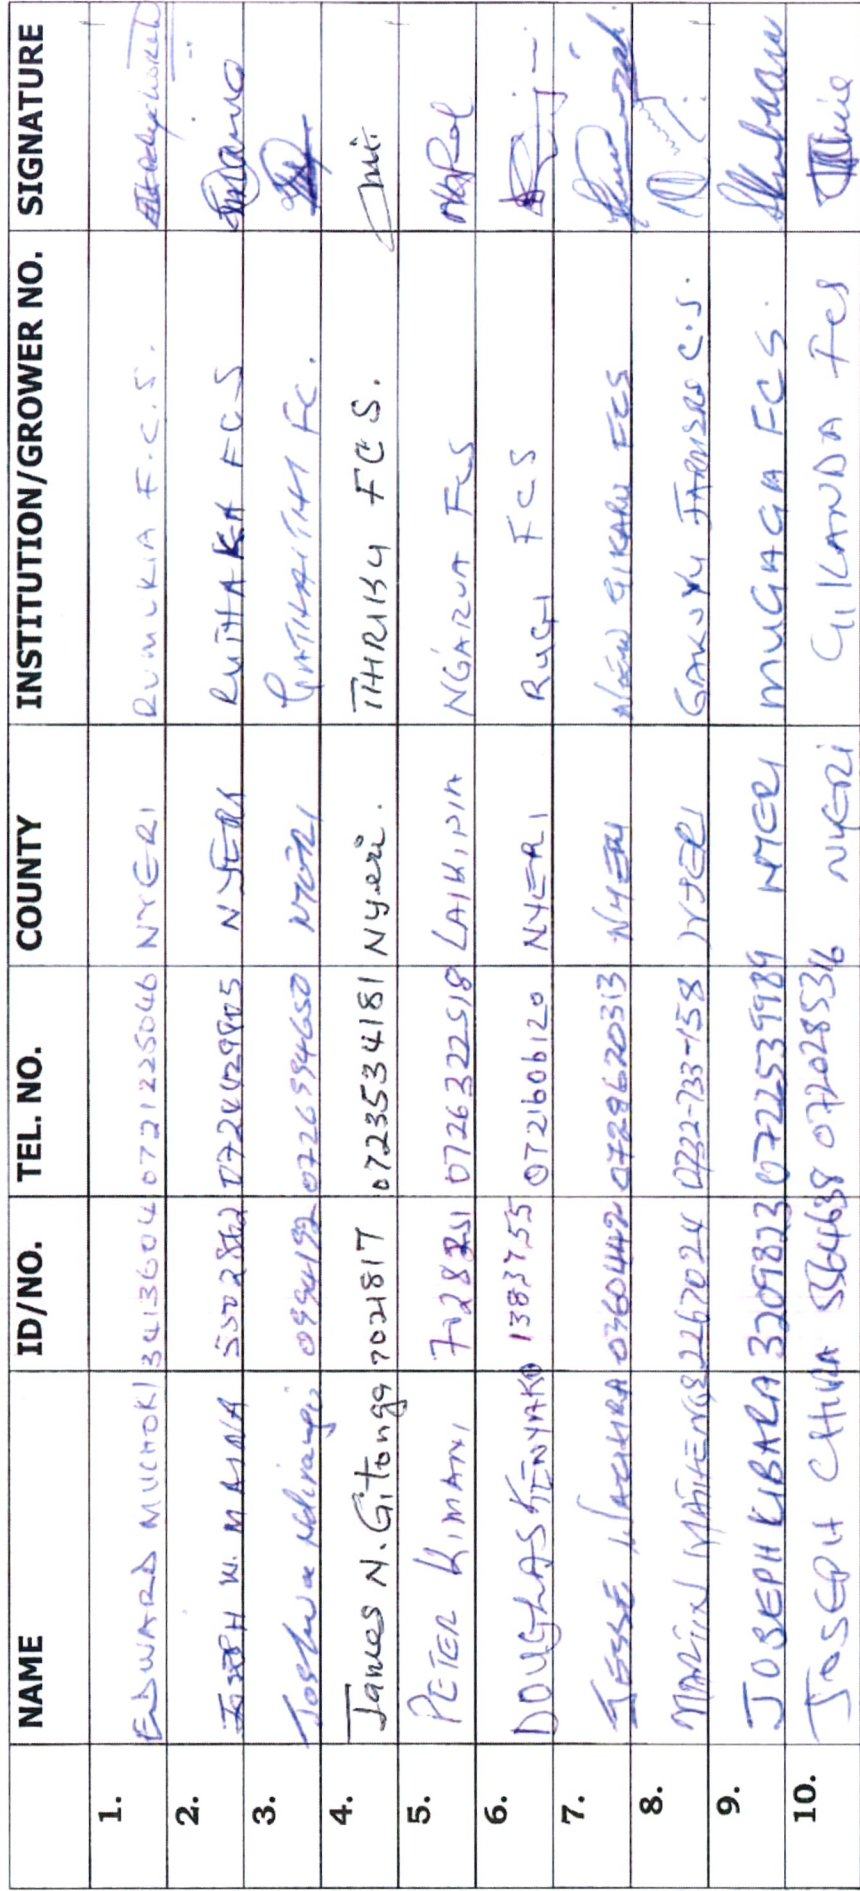 NAME ID/NO. TEL. NO. COUNTY INSTITUTION/GROWER NO. SIGNATURE
1. EDWARD MUCHOKI 3413604 0721225046 NYERI RUMUKIA F.C.S.
2. JOSEPH W. MAINA NYERI RUTHAKA FCS
3. Joshua Ndirangu 0726594650 NYERI GATHAITHI FC.
4. James N. Gitonga 7021817 0723534181 Nyeri. THIRIKU FCS.
5. PETER KIMANI 0726322518 LAIKIPIA NGARUA FCS
6. DOUGLAS KENYAKO 1383755 0721606120 NYERI RUGI FCS
7. JESSE 0360442 0729620313 NYERI NEW GIKARU FCS
8. MARTIN MATHENGE 2267024 0732-733-158 NYERI GAKUYU FARMERS C.S.
9. JOSEPH KIBARA 3209823 0722539989 NYERI MUGAGA FCS.
10. JOSEPH CHIRA 5564638 0720285316 NYERI GIKANDA FCS